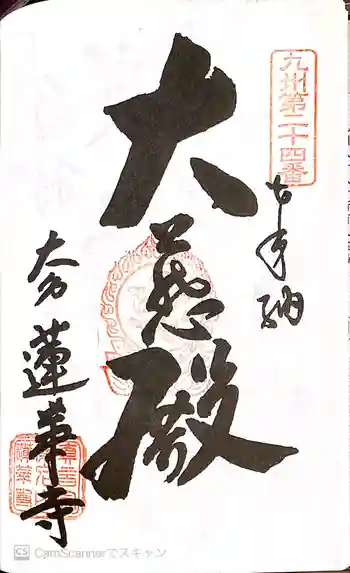 九州第二十四番
奉納
大慈殿
蓮華寺
CS CamScannerでスキャン